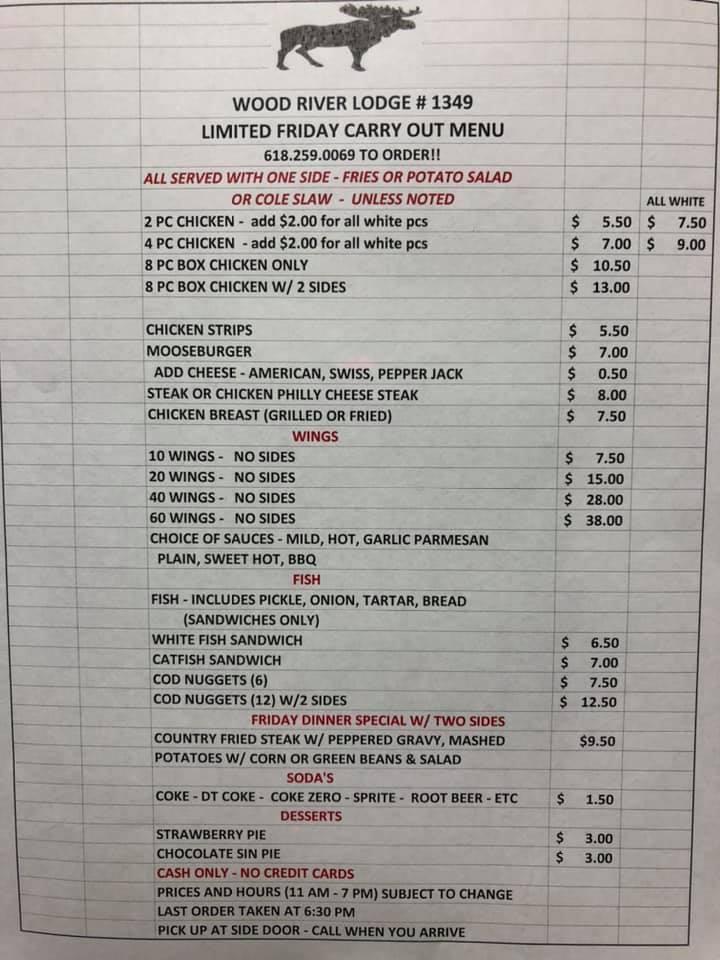 WOOD RIVER LODGE # 1349
LIMITED FRIDAY CARRY OUT MENU
618.259.0069 TO ORDER!!
ALL SERVED WITH ONE SIDE - FRIES OR POTATO SALAD
OR COLE SLAW - UNLESS NOTED ALL WHITE
2 PC CHICKEN - add $2.00 for all white pcs $ 5.50 $ 7.50
4 PC CHICKEN - add $2.00 for all white pcs $ 7.00 $ 9.00
8 PC BOX CHICKEN ONLY $ 10.50
8 PC BOX CHICKEN W/ 2 SIDES $ 13.00
CHICKEN STRIPS $ 5.50
MOOSEBURGER $ 7.00
ADD CHEESE - AMERICAN, SWISS, PEPPER JACK $ 0.50
STEAK OR CHICKEN PHILLY CHEESE STEAK $ 8.00
CHICKEN BREAST (GRILLED OR FRIED) $ 7.50
WINGS
10 WINGS - NO SIDES $ 7.50
20 WINGS - NO SIDES $ 15.00
40 WINGS - NO SIDES $ 28.00
60 WINGS - NO SIDES $ 38.00
CHOICE OF SAUCES - MILD, HOT, GARLIC PARMESAN
PLAIN, SWEET HOT, BBQ
FISH
FISH - INCLUDES PICKLE, ONION, TARTAR, BREAD
(SANDWICHES ONLY)
WHITE FISH SANDWICH $ 6.50
CATFISH SANDWICH $ 7.00
COD NUGGETS (6) $ 7.50
COD NUGGETS (12) W/2 SIDES $ 12.50
FRIDAY DINNER SPECIAL W/ TWO SIDES
COUNTRY FRIED STEAK W/ PEPPERED GRAVY, MASHED $9.50
POTATOES W/ CORN OR GREEN BEANS & SALAD
SODA'S
COKE - DT COKE - COKE ZERO - SPRITE - ROOT BEER - ETC $ 1.50
DESSERTS
STRAWBERRY PIE $ 3.00
CHOCOLATE SIN PIE $ 3.00
CASH ONLY - NO CREDIT CARDS
PRICES AND HOURS (11 AM - 7 PM) SUBJECT TO CHANGE
LAST ORDER TAKEN AT 6:30 PM
PICK UP AT SIDE DOOR - CALL WHEN YOU ARRIVE